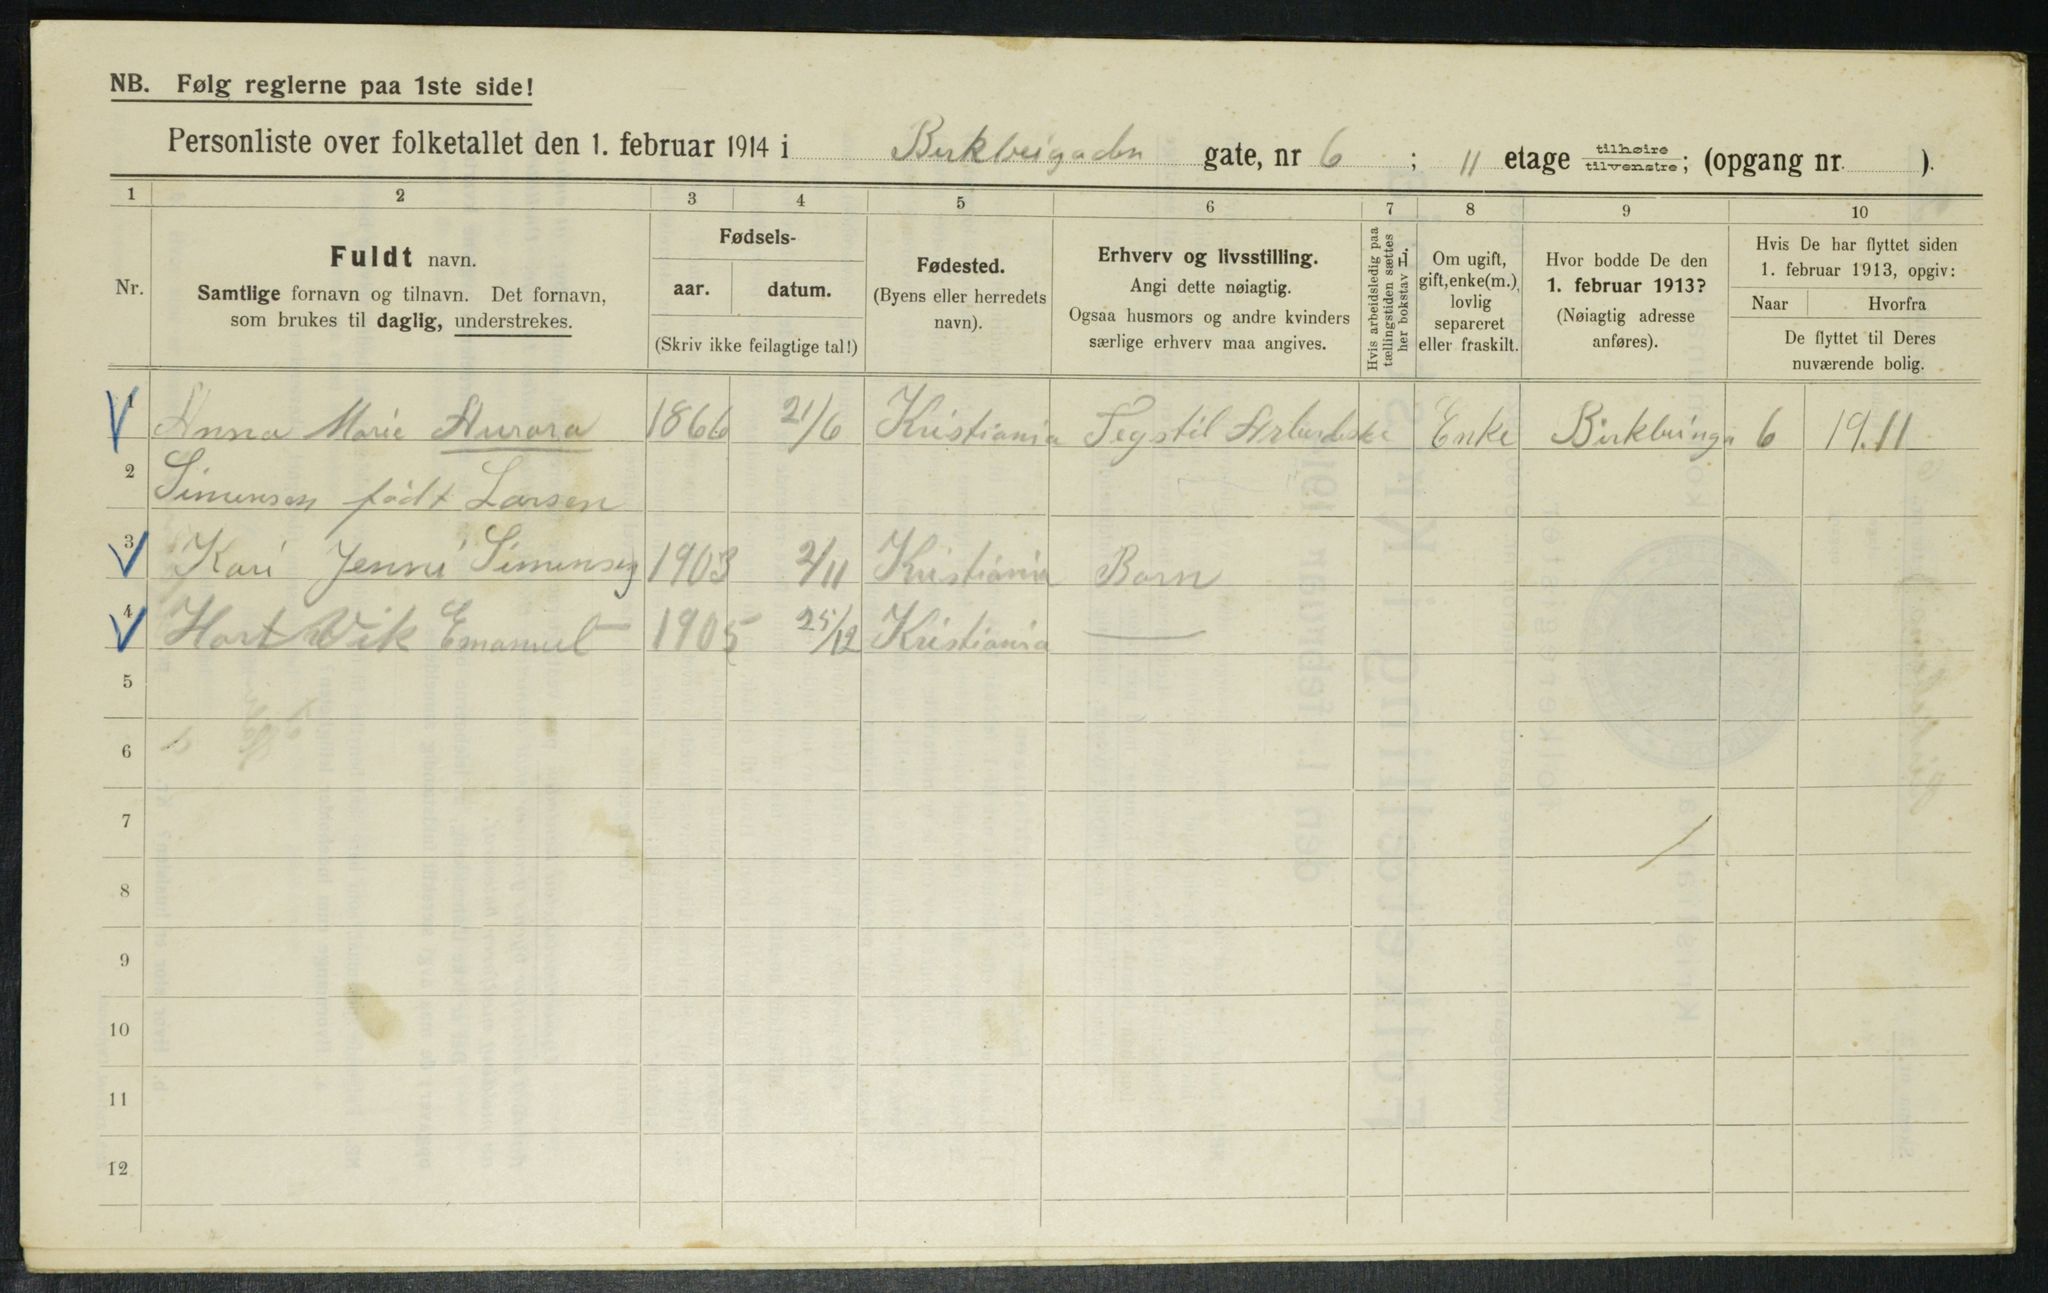 NB. Følg reglerne paa 1ste side!
Personliste over folketallet den 1. februar 1914 i Birkbeigaden gate, nr 6 ; II etage tilhøire tilvenstre; (opgang nr. ).
1 2 3 4 5 6 7 8 9 10
Nr.
Fuldt navn.
Samtlige fornavn og tilnavn. Det fornavn,
som brukes til daglig, understrekes.
Fødsels-
aar. datum.
(Skriv ikke feilagtige tal!)
Fødested.
(Byens eller herredets
navn).
Erhverv og livsstilling.
Angi dette nøiagtig.
Ogsaa husmors og andre kvinders
særlige erhverv maa angives.
Hvis arbeidsledig paa
tællingstiden sættes
her bokstav L.
Om ugift,
gift, enke(m.),
lovlig
separeret
eller fraskilt.
Hvor bodde De den
1. februar 1913?
(Nøiagtig adresse
anføres).
Hvis De har flyttet siden
1. februar 1913, opgiv:
Naar Hvorfra
De flyttet til Deres
nuværende bolig.
1 Anna Marie Aurora 1866 21/6 Kristiania Tegstil Arbeideske Enke Birkbeinga 6 19.11
2 Simensen født Larsen
3 Kari Jenni Simensen 1903 2/11 Kristiania Barn
4 Hart Vik Emanuel — 1905 25/12 Kristiania —
5
6
7
8
9
10
11
12